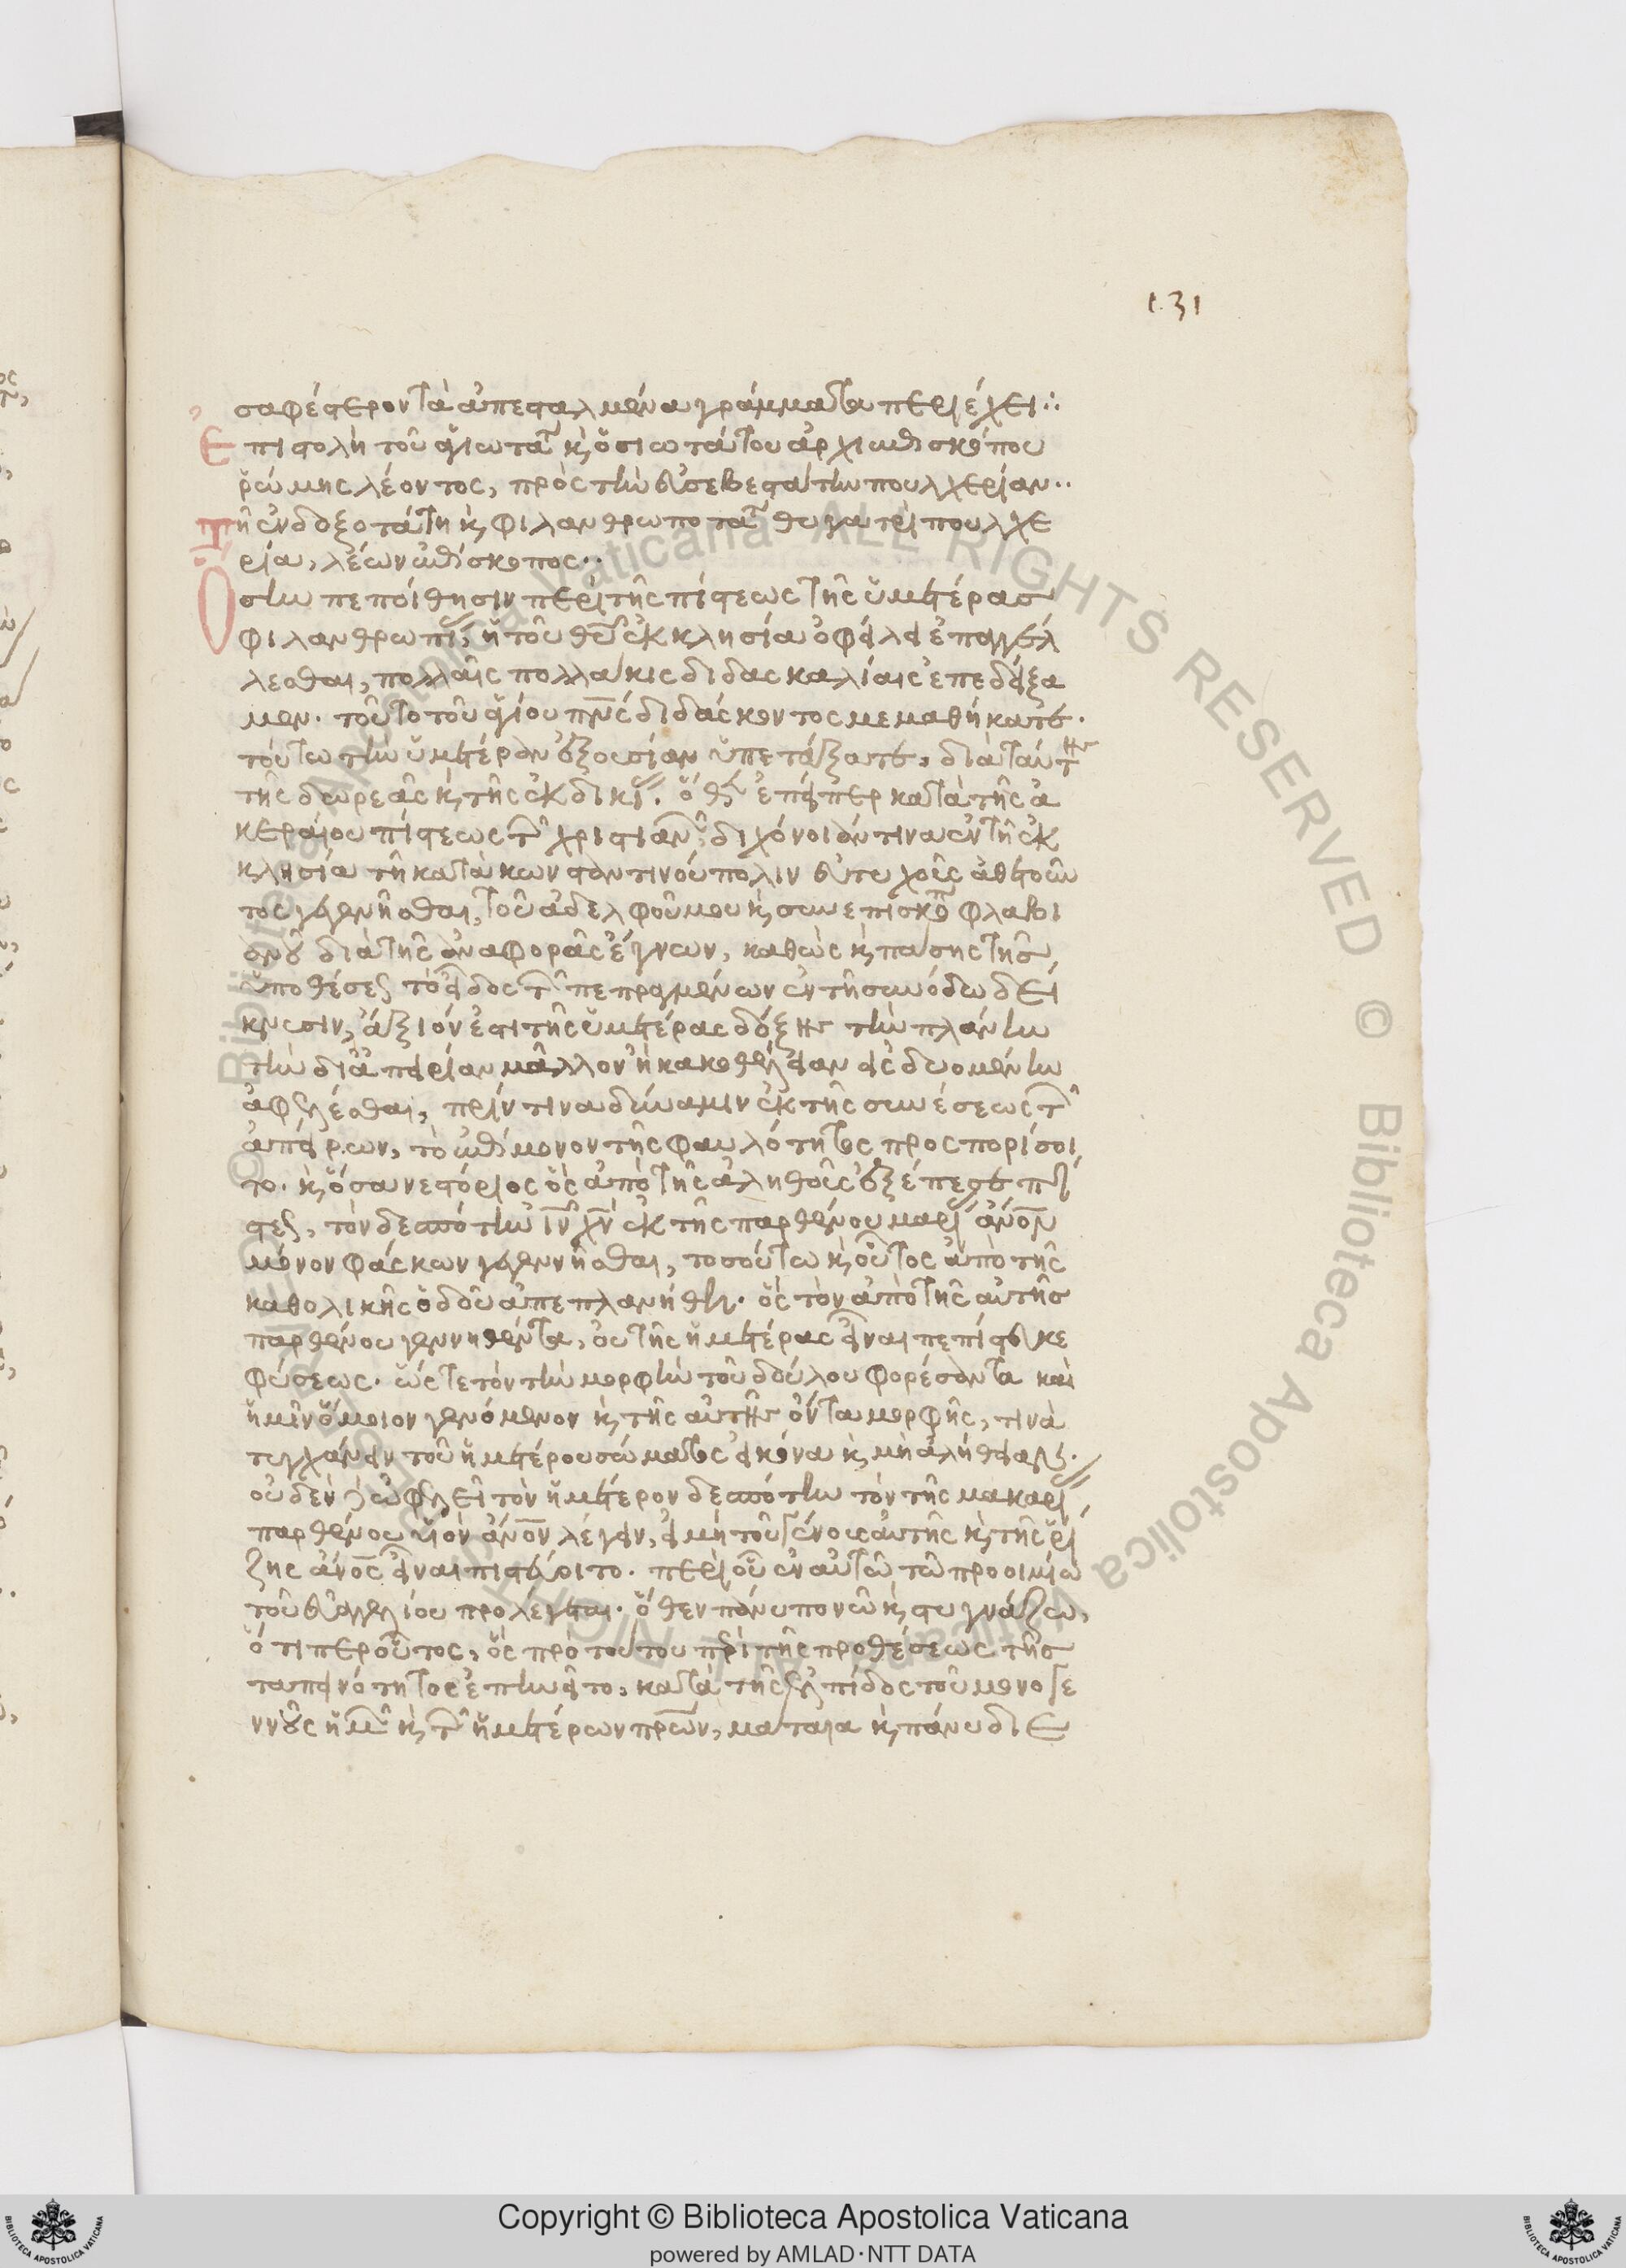 131
σαφέστερον τὰ ἀπεσταλμένα γράμματα περιέχει
Ἐπιστολὴ τοῦ ἁγιωτάτ κ ὁσιωτάτου ἀρχιεπισκόπου
ῥώμης λέοντος, πρὸς τὴν εὐσεβεστάτην πουλχερίαν
Τῆ ἐνδοξοτάτη κ φιλανθρωποτάτ θυγατρὶ πουλχε
ρία, λέων ἐπίσκοπος
Ὅστιν πεποίθησιν περὶ τῆς πίστεως τῆς ὑμετέρας
φιλανθρωπί, ἡ τοῦ θυ ἐκκλησία ὀφείλει ἐπαγγέλ
λεσθαι, πολλαῖς πολλάκις διδασκαλίαις ἐπεδείξα
μεν. τοῦτο τοῦ ἁγίου πνς διδάσκοντος μεμαθήκατε.
τούτω τὴν ὑμετέραν ἐξουσίαν ὑπετάξατε, διὰ ταύτης
τῆς δωρεᾶς κ τῆς ἐκδικί. ὅθεν ἐπείπερ κατὰ τῆς ἀ
κεραίου πίστεως τ χριστιαν διχόνοιάν τινα ἐν τῆ ἐκ
κλησία τῆ κατὰ κωνσταντινούπολιν εὐτυχοῦς αὐθεντοῦν
τος γεγενῆσθαι, τοῦ ἀδελφοῦ μου κ συνεπισκό φλαβι
ανοῦ διὰ τῆς ἀναφορᾶς ἔγνων, καθὼς κ πάσης τῆς
ὑποθέσεως τὸ εἶδος τ πεπραγμένων ἐν τῆ συνόδω δεί
κνυσιν, ἄξιόν ἐστι τῆς ὑμετέρας δόξης τὴν πλάνην
τὴν διὰ ἀπειρίαν μᾶλλον ἢ κακοήθειαν
ἀφελέσθαι, πρίν τινα δύναμιν ἐκ τῆς συνέσεως τ
ἀπείρων, τὸ ἐπίμονον τῆς φαυλότητος προσπορίσοι
το. κ ὅσα νεστόριος ὃς ἀπὸ τῆς ἀληθοῦς ἐξέπεσε πί
στεως, τὸν δεσπότην ἰν χν ἐκ τῆς παρθένου μαρί ἄνον
μόνον φάσκων γεγεννῆσθαι, τοσούτω κ οὗτος ἀπὸ τῆς
καθολικῆς ὁδοῦ ἀπεπλανήθη. ὃς τὸν ἀπὸ τῆς αὐτῆς
παρθένου γεννηθέντα, οὐ τῆς ἡμετέρας εἶναι πεπίστευκε
φύσεως. ὥστε τὸν τὴν μορφὴν τοῦ δούλου φορέσαντα καὶ
ἡμῖν ὅμοιον γενόμενον κ τῆς αὐτῆς ὄντα μορφῆς, τινὰ
τυγχάνειν τοῦ ἡμετέρου σώματος εἰκόνα κ μὴ ἀλήθειαν.
οὐδὲν γ ὠφελεῖ τὸν ἡμέτερον δεσπότην τὸν τῆς μακαρί
παρθένου υἱὸν ἄνον λέγειν, εἰ μὴ τοῦ γένους αὐτῆς κ τῆς ῥί
ζης ἄνος εἶναι πιστεύοιτο. περὶ οὗ ἐν αὐτῶ τῶ προοιμίω
τοῦ εὐαγγελίου προλέγεται. ὅθεν πάνυ πονῶ κ στυγνάζω,
ὅτιπερ οὗτος, ὃς πρὸ τούτου περὶ τῆς προθέσεως τῆς
ταπεινότητος ἐπηνεῖτο, κατὰ τῆς ἐλπίδος τοῦ μονογε
νοῦς ἡμ κ τ ἡμετέρων πρων, μάταια κ πάνυ διε